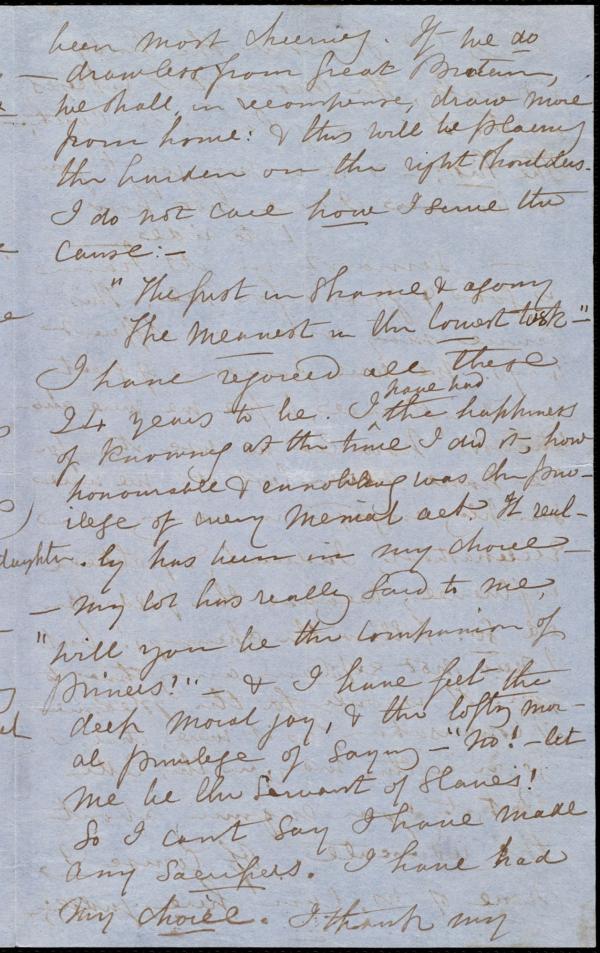 been most cheering. If we do
— draw less from Great Britain,
we shall, in recompense, draw more
from home: & this will be placing
the burden on the right shoulders.
I do not care how I serve the
cause:—
"The first in shame & agony
The meanest in the lowest task—"
I have rejoiced all these
24 years to be. I have had the happiness
of knowing at the time I did it, how
honourable & ennobling was the priv-
ilege of every menial act. It real-
daughter. ly has been in my choice—
— my lot has really said to me,
"will you be the companion of
princes!"— & I have felt the
deep moral joy, & the lofty mor-
al privilege of saying—"No!—let
me be the servant of slaves!
So I can't say I have made
any sacrifices. I have had
my choice. I thank my